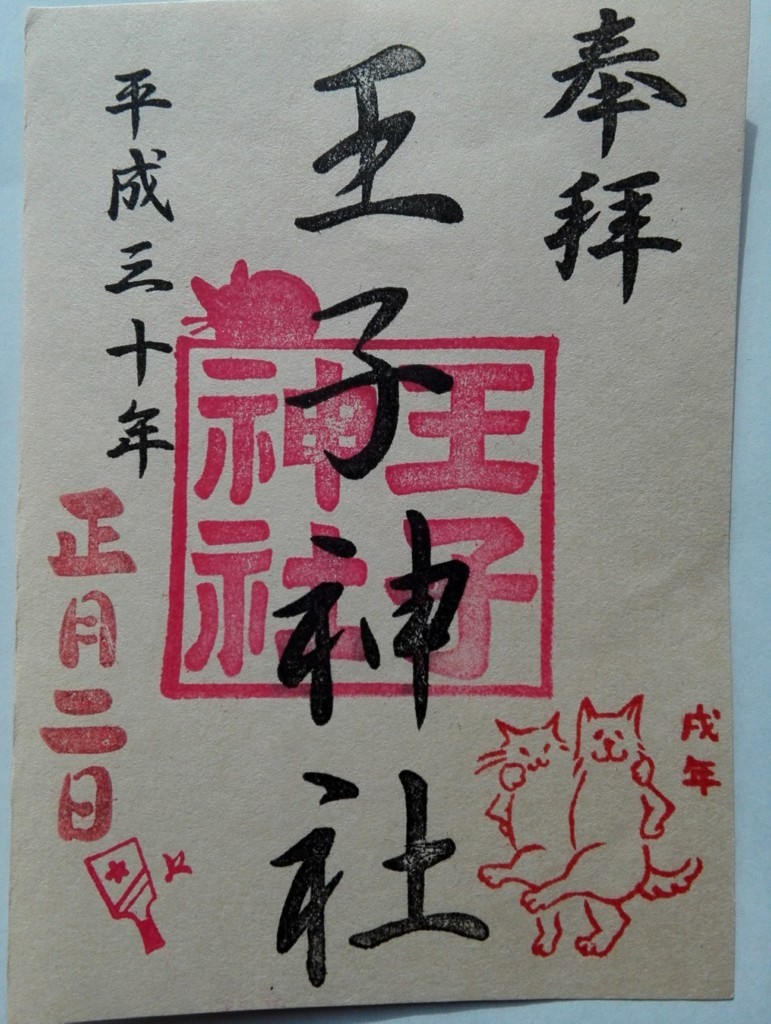 奉拝
王子神社
王子
神社
平成三十年
正月二日
戌年